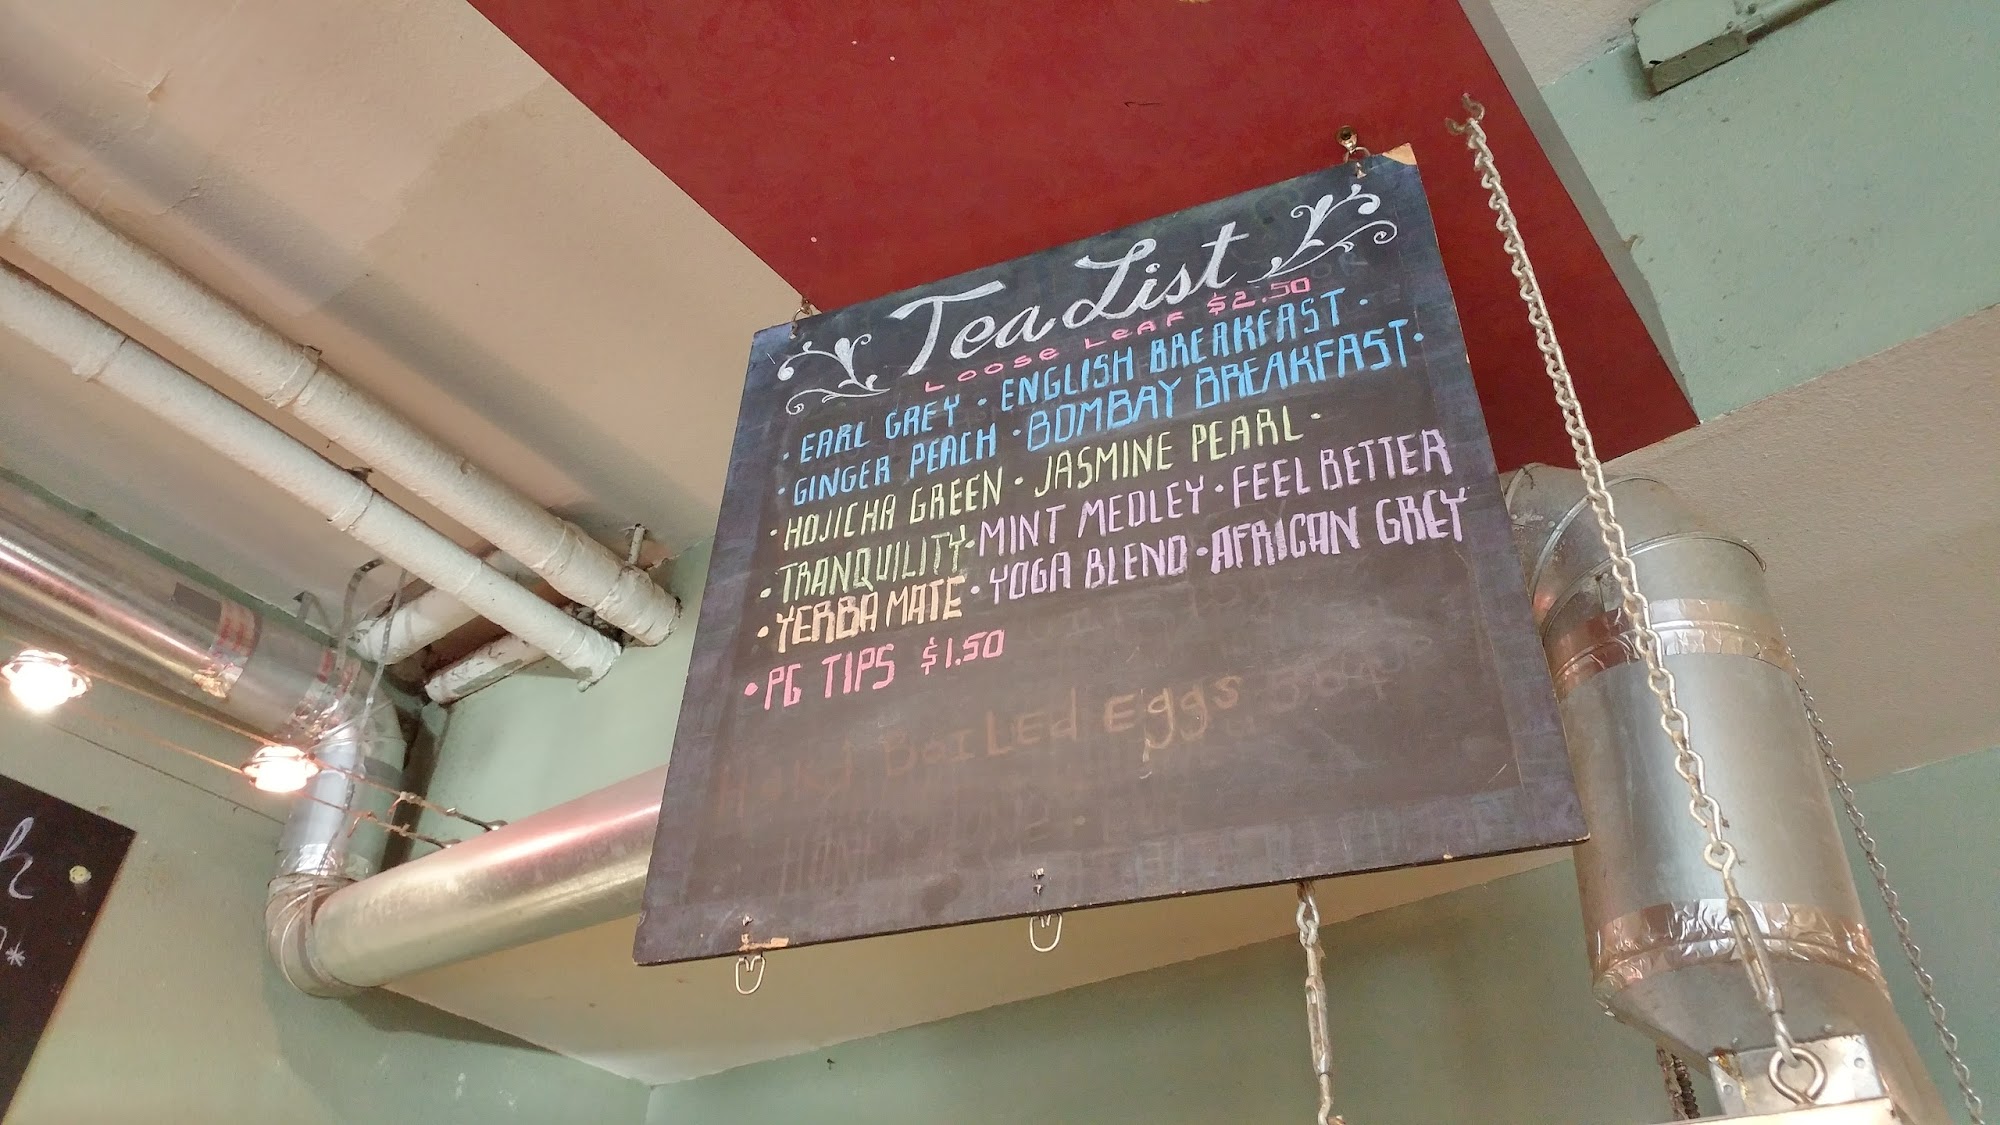 Tea List
LOOSE LEAF $2.50
• EARL GREY • ENGLISH BREAKFAST •
• GINGER PEACH • BOMBAY BREAKFAST •
• HOJICHA GREEN • JASMINE PEARL •
• TRANQUILITY • MINT MEDLEY • FEEL BETTER
• YERBA MATE • YOGA BLEND • AFRICAN GREY
• PG TIPS $1.50
HARd BoILEd Eggs